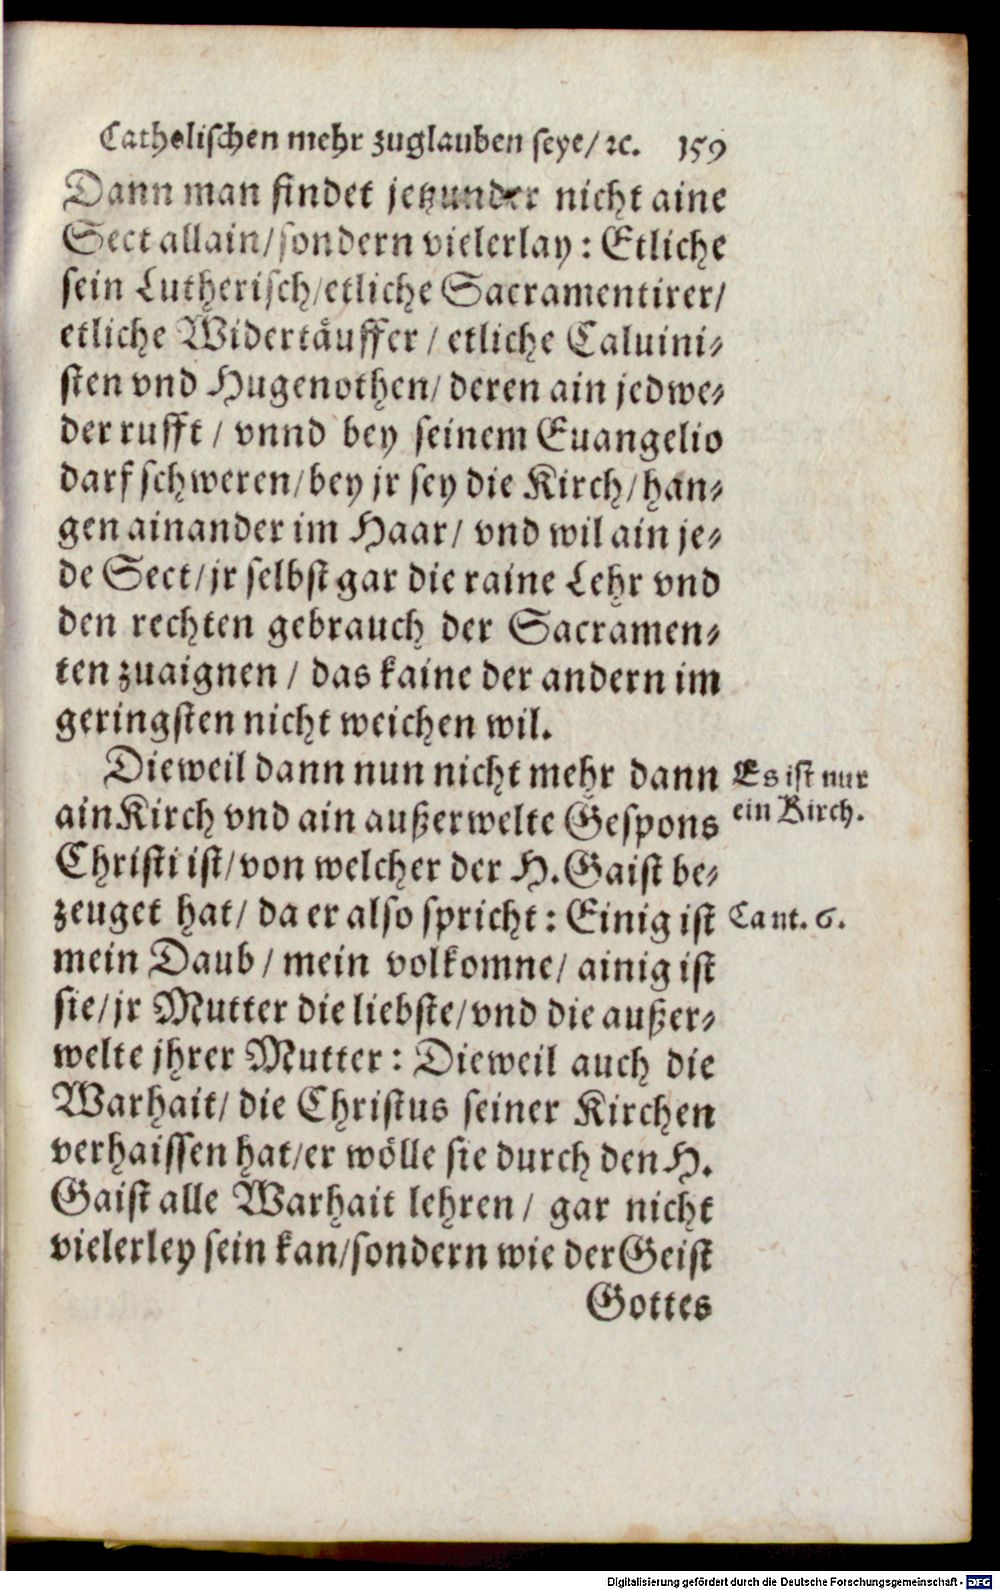 Catholischen mehr zuglauben seye/ ꝛc. 159
Dann man findet jetzunder nicht aine
Sect allain/sondern vielerlay: Etliche
sein Lutherisch/etliche Sacramentirer/
etliche Widertäuffer / etliche Caluini⸗
sten vnd Hugenothen/ deren ain jedwe⸗
der rufft / vnnd bey seinem Euangelio
darf schweren/bey jr sey die Kirch/han⸗
gen ainander im Haar/ vnd wil ain je⸗
de Sect/jr selbst gar die raine Lehr vnd
den rechten gebrauch der Sacramen⸗
ten zuaignen / das kaine der andern im
geringsten nicht weichen wil.
Dieweil dann nun nicht mehr dann
ain Kirch vnd ain außerwelte Gespons
Christi ist/von welcher der H. Gaist be⸗
zeuget hat/ da er also spricht: Einig ist
mein Daub / mein volkomne/ ainig ist
sie/jr Mutter die liebste/vnd die außer⸗
welte jhrer Mutter: Dieweil auch die
Warhait/ die Christus seiner Kirchen
verhaissen hat/er wölle sie durch den H.
Gaist alle Warhait lehren / gar nicht
vielerley sein kan/sondern wie der Geist
Gottes
Es ist nur
ein Kirch.
Cant. 6.
Digitalisierung gefördert durch die Deutsche Forschungsgemeinschaft - DFG